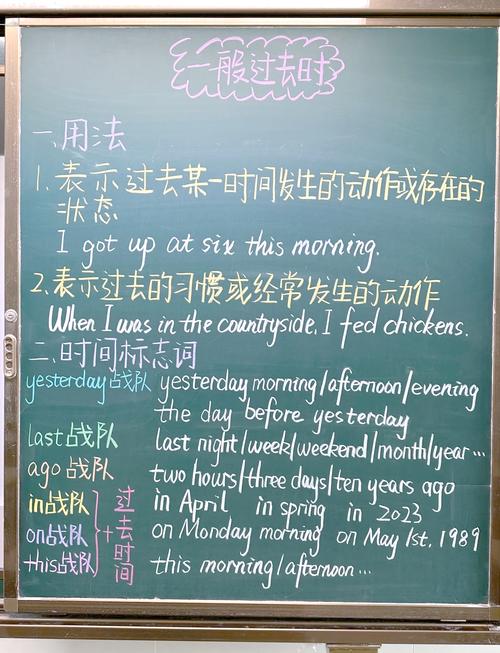 一般过去时
一、用法
1. 表示过去某一时间发生的动作或存在的
状态
I got up at six this morning.
2. 表示过去的习惯或经常发生的动作
When I was in the countryside, I fed chickens.
二、时间标志词
yesterday战队 yesterday morning/afternoon/evening
the day before yesterday
last战队 last night/week/weekend/month/year…
ago战队 two hours/three days/ten years ago
in战队 in April in spring in 2023
on战队 + 过去时间 on Monday morning on May 1st, 1989
this战队 this morning/afternoon…